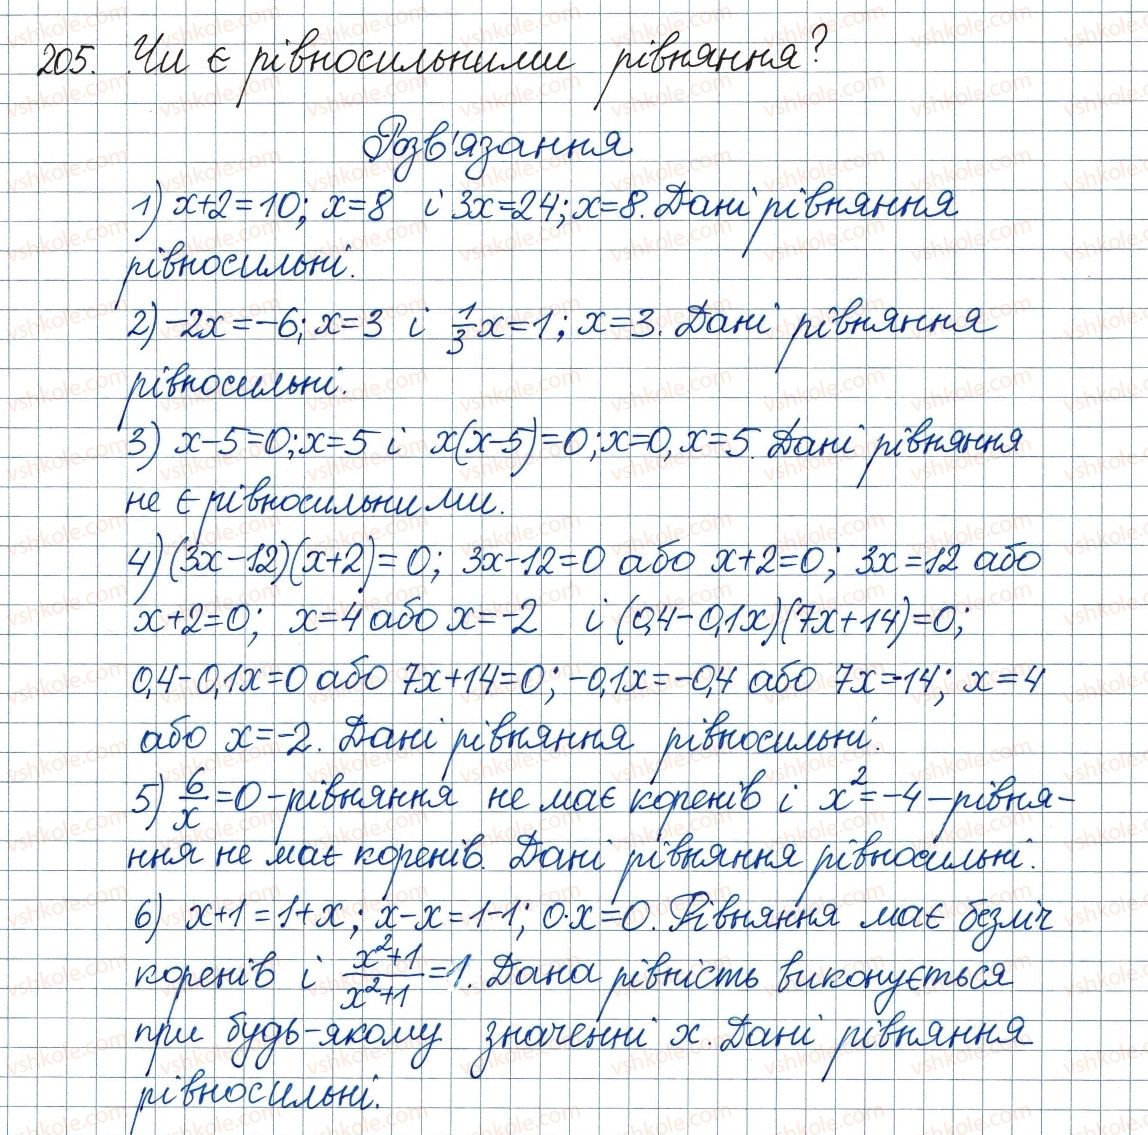 205. Чи є рівносильними рівняння?
Розв'язання
1) x+2=10; x=8 і 3x=24; x=8. Дані рівняння
рівносильні.
2) -2x=-6; x=3 і 1/3 x=1; x=3. Дані рівняння
рівносильні.
3) x-5=0; x=5 і x(x-5)=0; x=0, x=5. Дані рівняння
не є рівносильними.
4) (3x-12)(x+2)=0; 3x-12=0 або x+2=0; 3x=12 або
x+2=0; x=4 або x=-2 і (0,4-0,1x)(7x+14)=0;
0,4-0,1x=0 або 7x+14=0; -0,1x=-0,4 або 7x=-14; x=4
або x=-2. Дані рівняння рівносильні.
5) 6/x=0 - рівняння не має коренів і x²=-4 - рівня-
ння не має коренів. Дані рівняння рівносильні.
6) x+1=1+x; x-x=1-1; 0·x=0. Рівняння має безліч
коренів і (x²+1)/(x²+1)=1. Дана рівність виконується
при будь-якому значенні x. Дані рівняння
рівносильні.